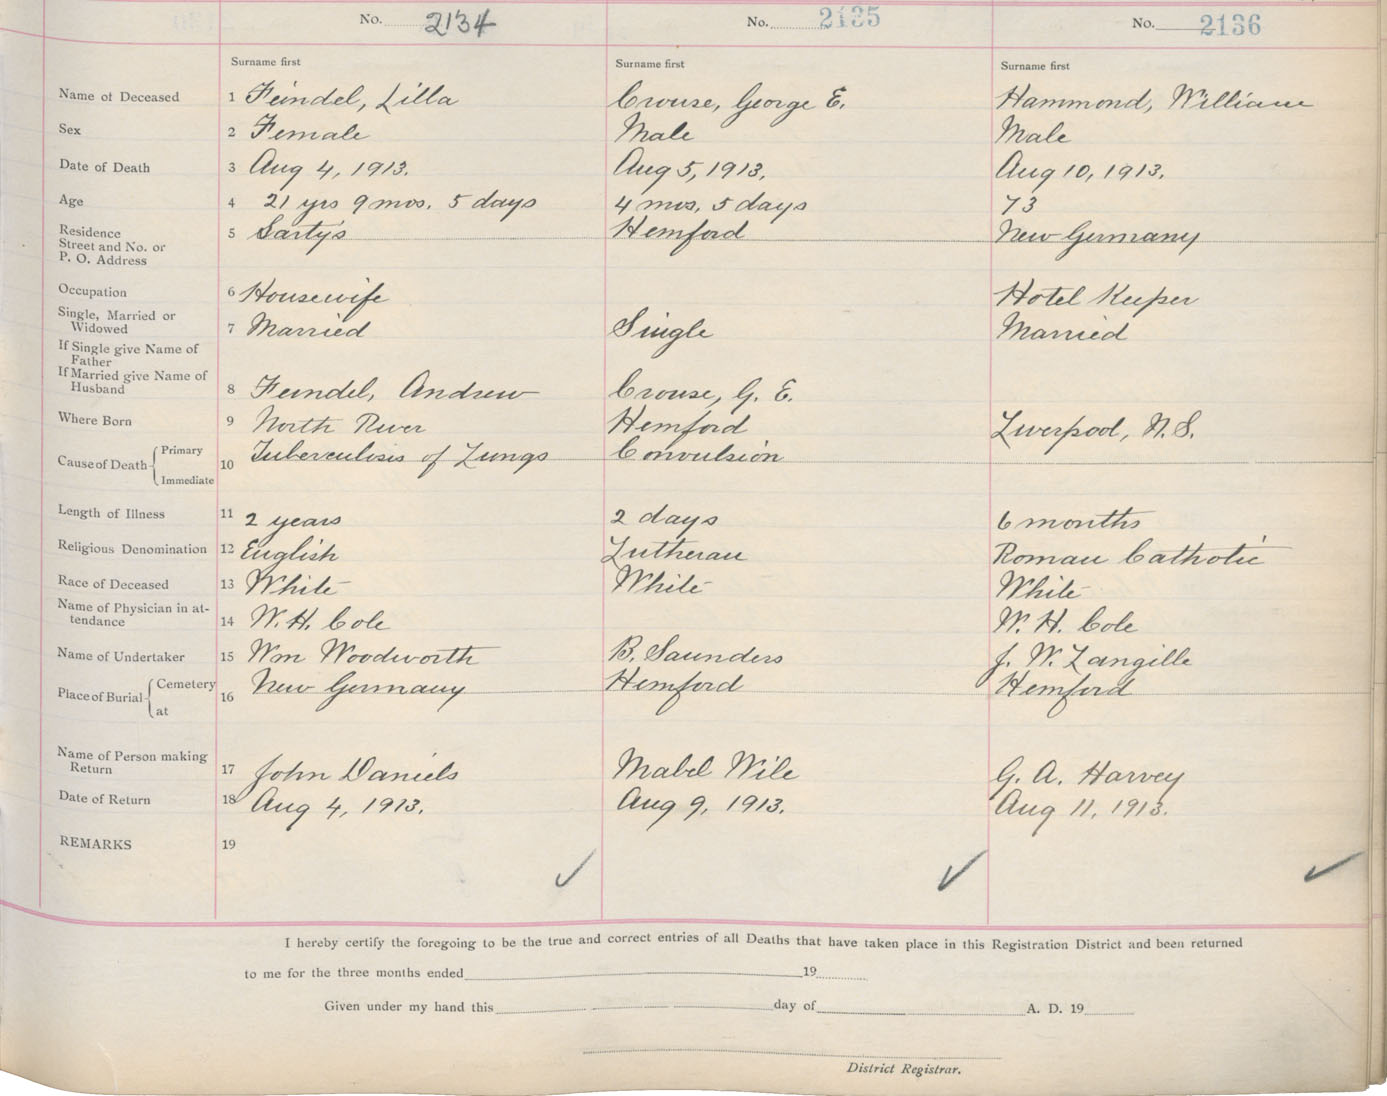 No. 2134 No. 2135 No. 2136
Surname first Surname first Surname first
Name of Deceased 1 Feindel, Lilla Crouse, George E. Hammond, William
Sex 2 Female Male Male
Date of Death 3 Aug 4, 1913. Aug 5, 1913. Aug 10, 1913.
Age 4 21 yrs 9 mos. 5 days 4 mos, 5 days 73
Residence 5 Sarty's Hemford New Germany
Street and No. or
P. O. Address
Occupation 6 Housewife Hotel Keeper
Single, Married or
Widowed 7 Married Single Married
If Single give Name of
Father
If Married give Name of
Husband 8 Feindel, Andrew Crouse, G. E.
Where Born 9 North River Hemford Liverpool, N.S.
Cause of Death Primary 10 Tuberculosis of Lungs Convulsion
Immediate
Length of Illness 11 2 years 2 days 6 months
Religious Denomination 12 English Lutheran Roman Catholic
Race of Deceased 13 White White White
Name of Physician in at-
tendance 14 W. H. Cole W. H. Cole
Name of Undertaker 15 Wm Woodworth B. Saunders J. W. Langille
Place of Burial Cemetery 16 New Germany Hemford Hemford
at
Name of Person making
Return 17 John Daniels Mabel Wile G. A. Harvey
Date of Return 18 Aug 4, 1913. Aug 9, 1913. Aug 11, 1913.
REMARKS 19
I hereby certify the foregoing to be the true and correct entries of all Deaths that have taken place in this Registration District and been returned
to me for the three months ended 19
Given under my hand this day of A. D. 19
District Registrar.